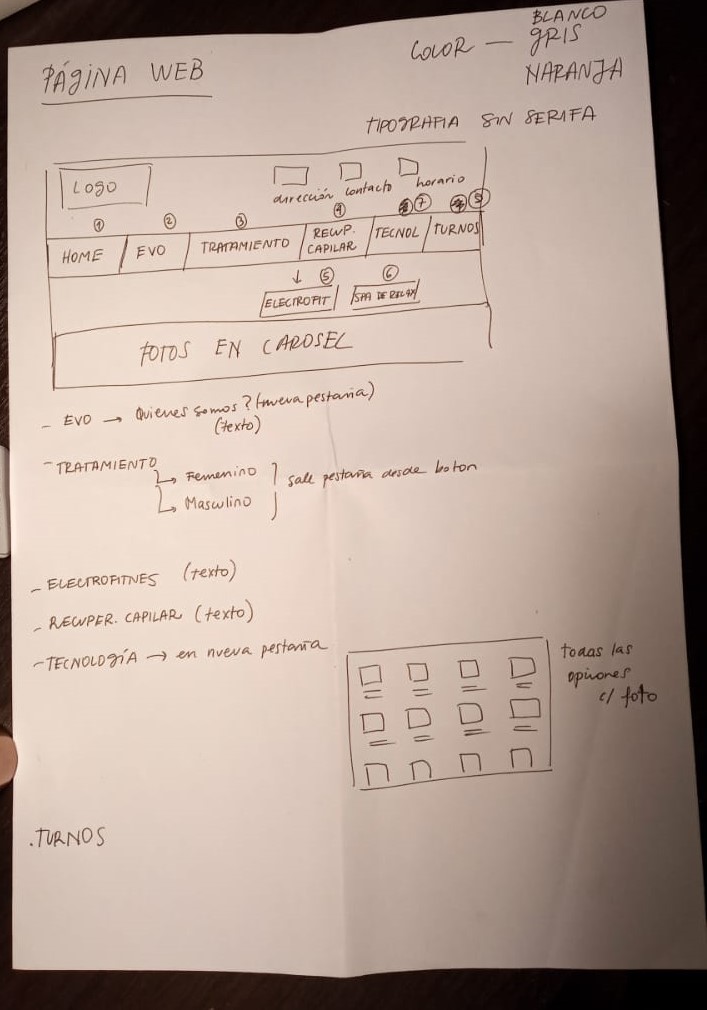 PÁGINA WEB
COLOR — BLANCO
GRIS
NARANJA
TIPOGRAFIA SIN SERIFA
LOGO
dirección contacto horario
① ② ③ ④ ⑦ ⑧
HOME EVO TRATAMIENTO RECUP. CAPILAR TECNOL TURNOS
↓ ⑤ ⑥
ELECTROFIT SPA DE RELAX
FOTOS EN CAROSEL
- EVO → Quienes somos? (nueva pestaña)
(texto)
- TRATAMIENTO
↳ Femenino
↳ Masculino
sale pestaña desde boton
- ELECTROFITNES (texto)
- RECUPER. CAPILAR (texto)
- TECNOLOGÍA → en nueva pestaña
todas las
opiniones
c/ foto
.TURNOS